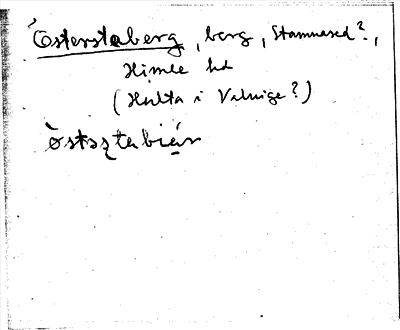 Österstaberg, berg, Stamnared?,
Himle hd
(Hulta i Valinge?)
östsztabiär